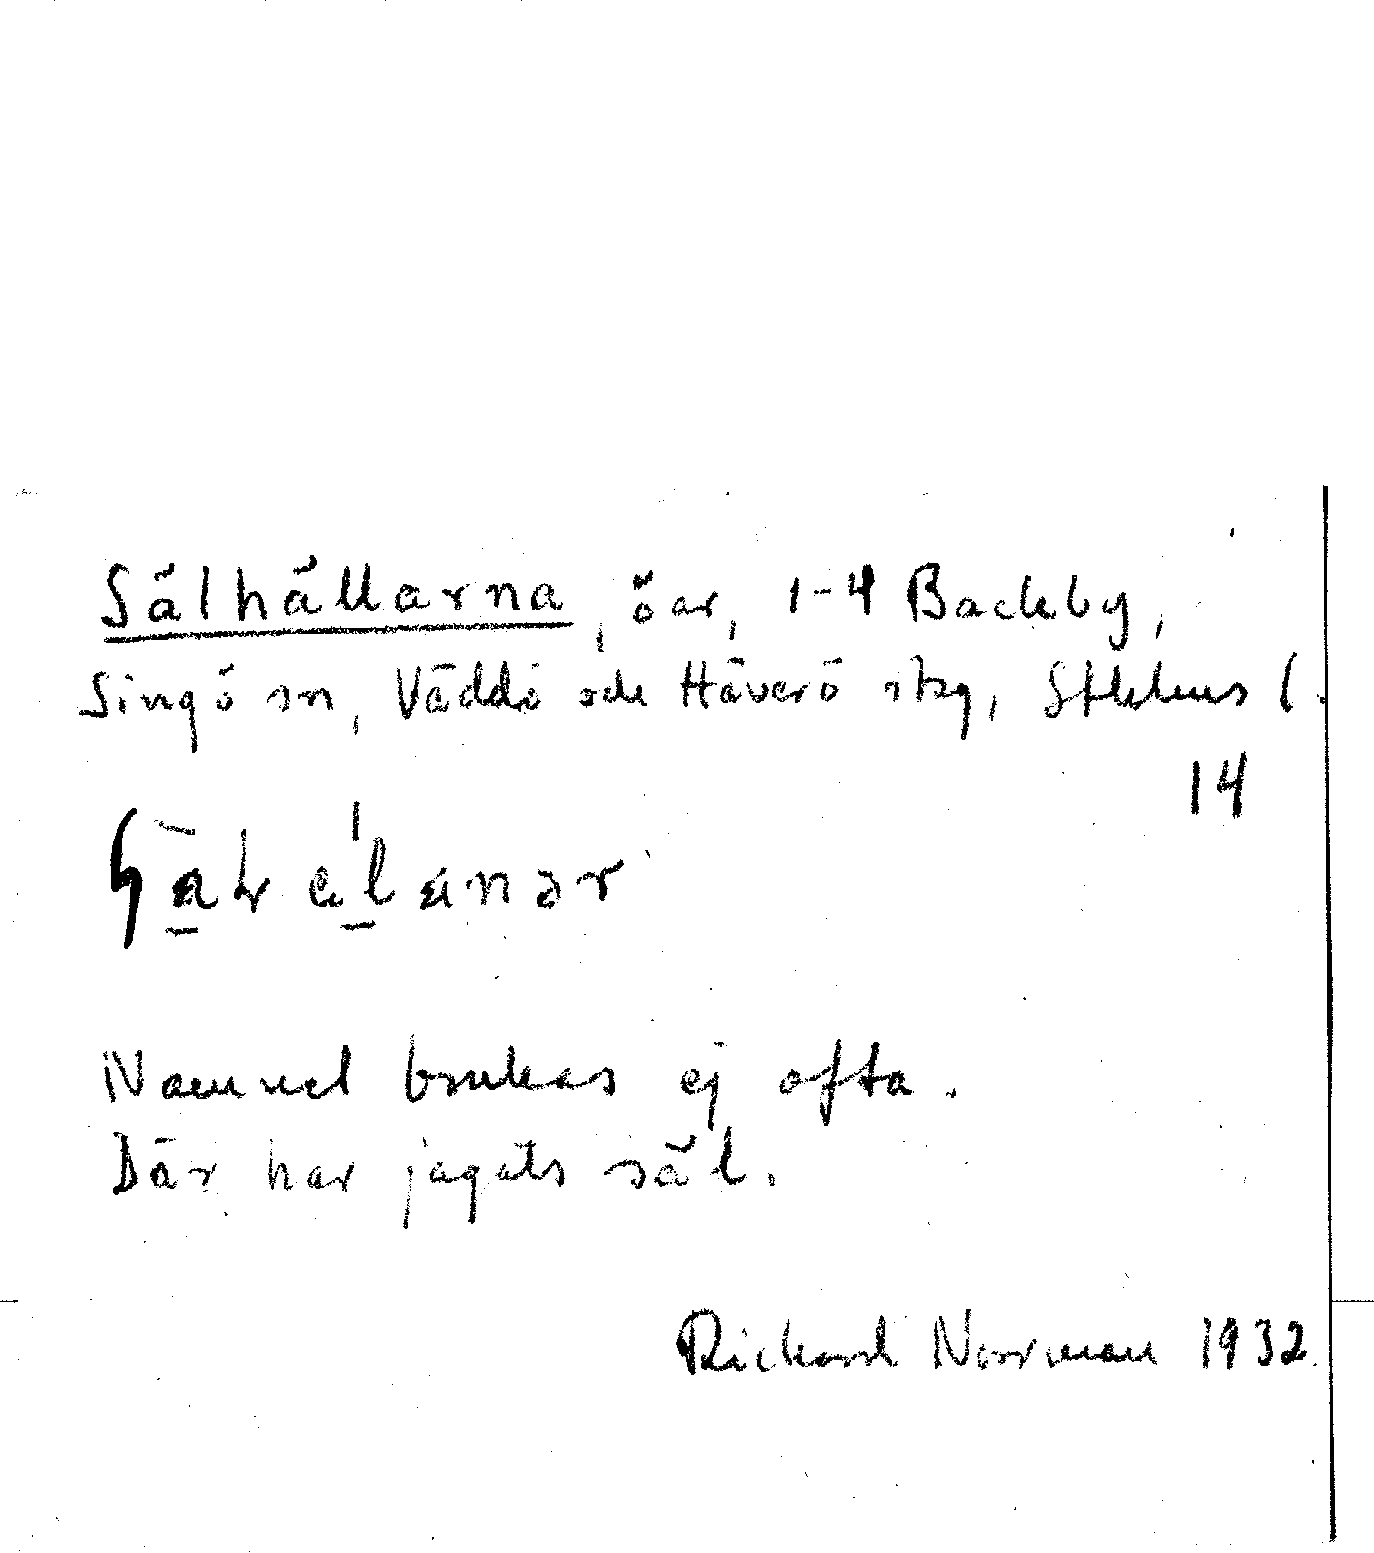 Sälhällarna, öar, 1-4 Backby,
Singö sn, Väddö och Häverö skg, Sthlms l.
14
Namnet brukas ej ofta.
Där har jagats säl.
Richard Norrman 1932.